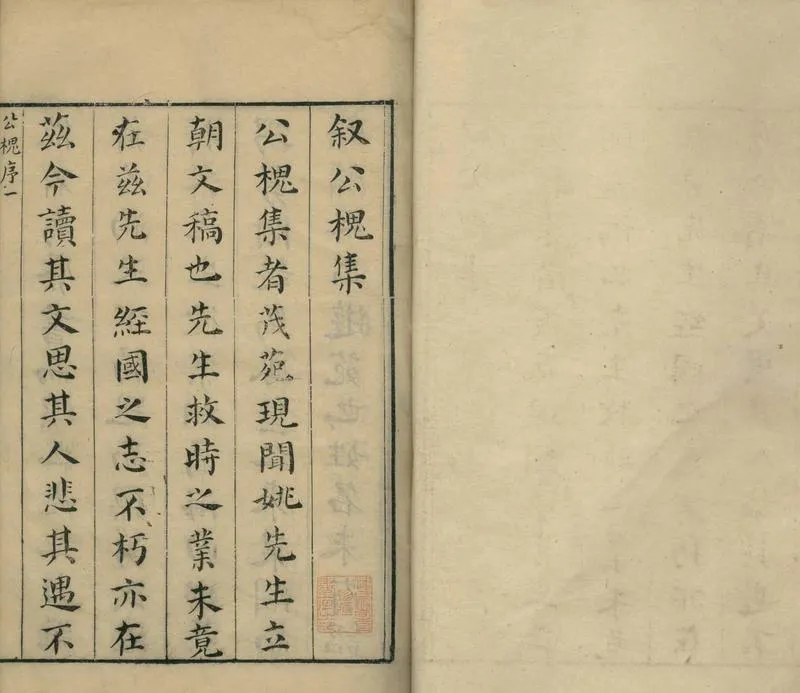 叙公槐集
公槐集者茂苑現聞姚先生立
朝文稿也先生救時之業未竟
在兹先生經國之志不朽亦在
茲今讀其文思其人悲其遇不
公槐序一